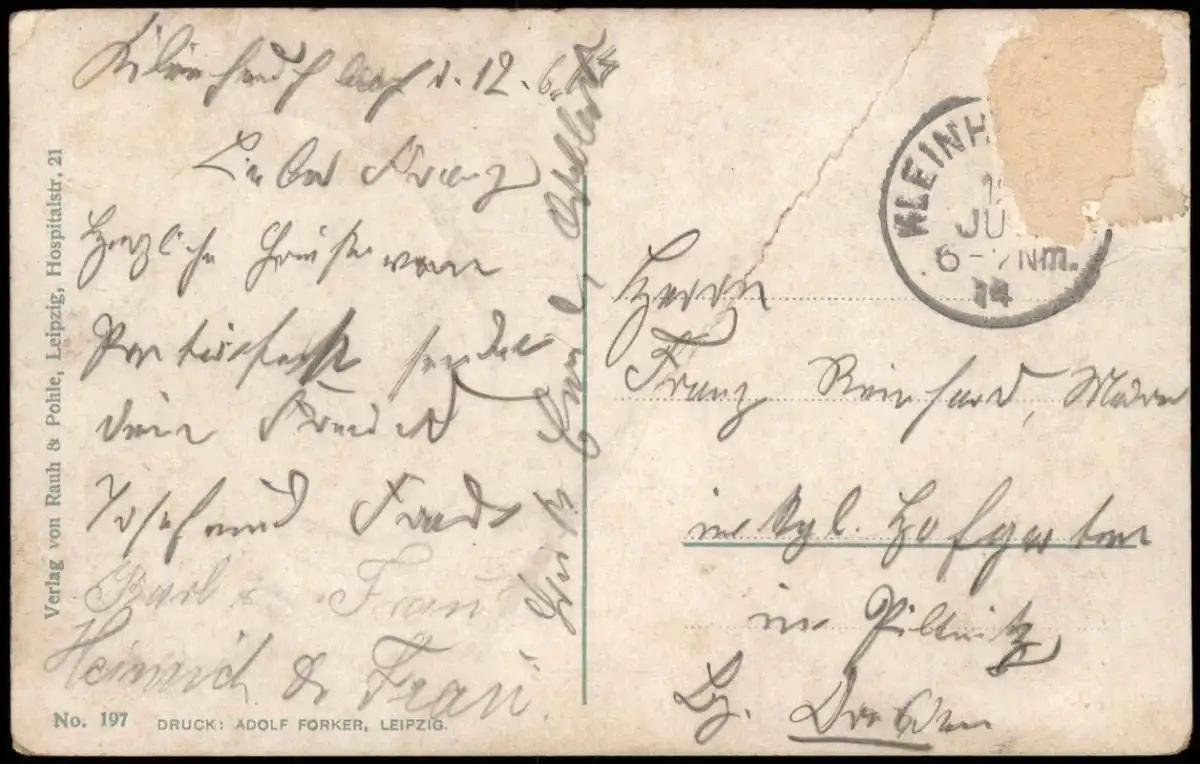 d. 12. 6. 14
Lieber Franz
Herzliche Grüße vom
sendet
dein Freund
Josef und Frau
Karl & Frau
Heinrich & Frau
Verlag von Rauh & Pohle, Leipzig, Hospitalstr. 21
No. 197 DRUCK: ADOLF FORKER, LEIPZIG.
KLEINH
JU
6-7 Nm.
14
Herrn
Franz Reinhard,
im Kgl. Hofgarten
in Pillnitz
Bz. Dresden